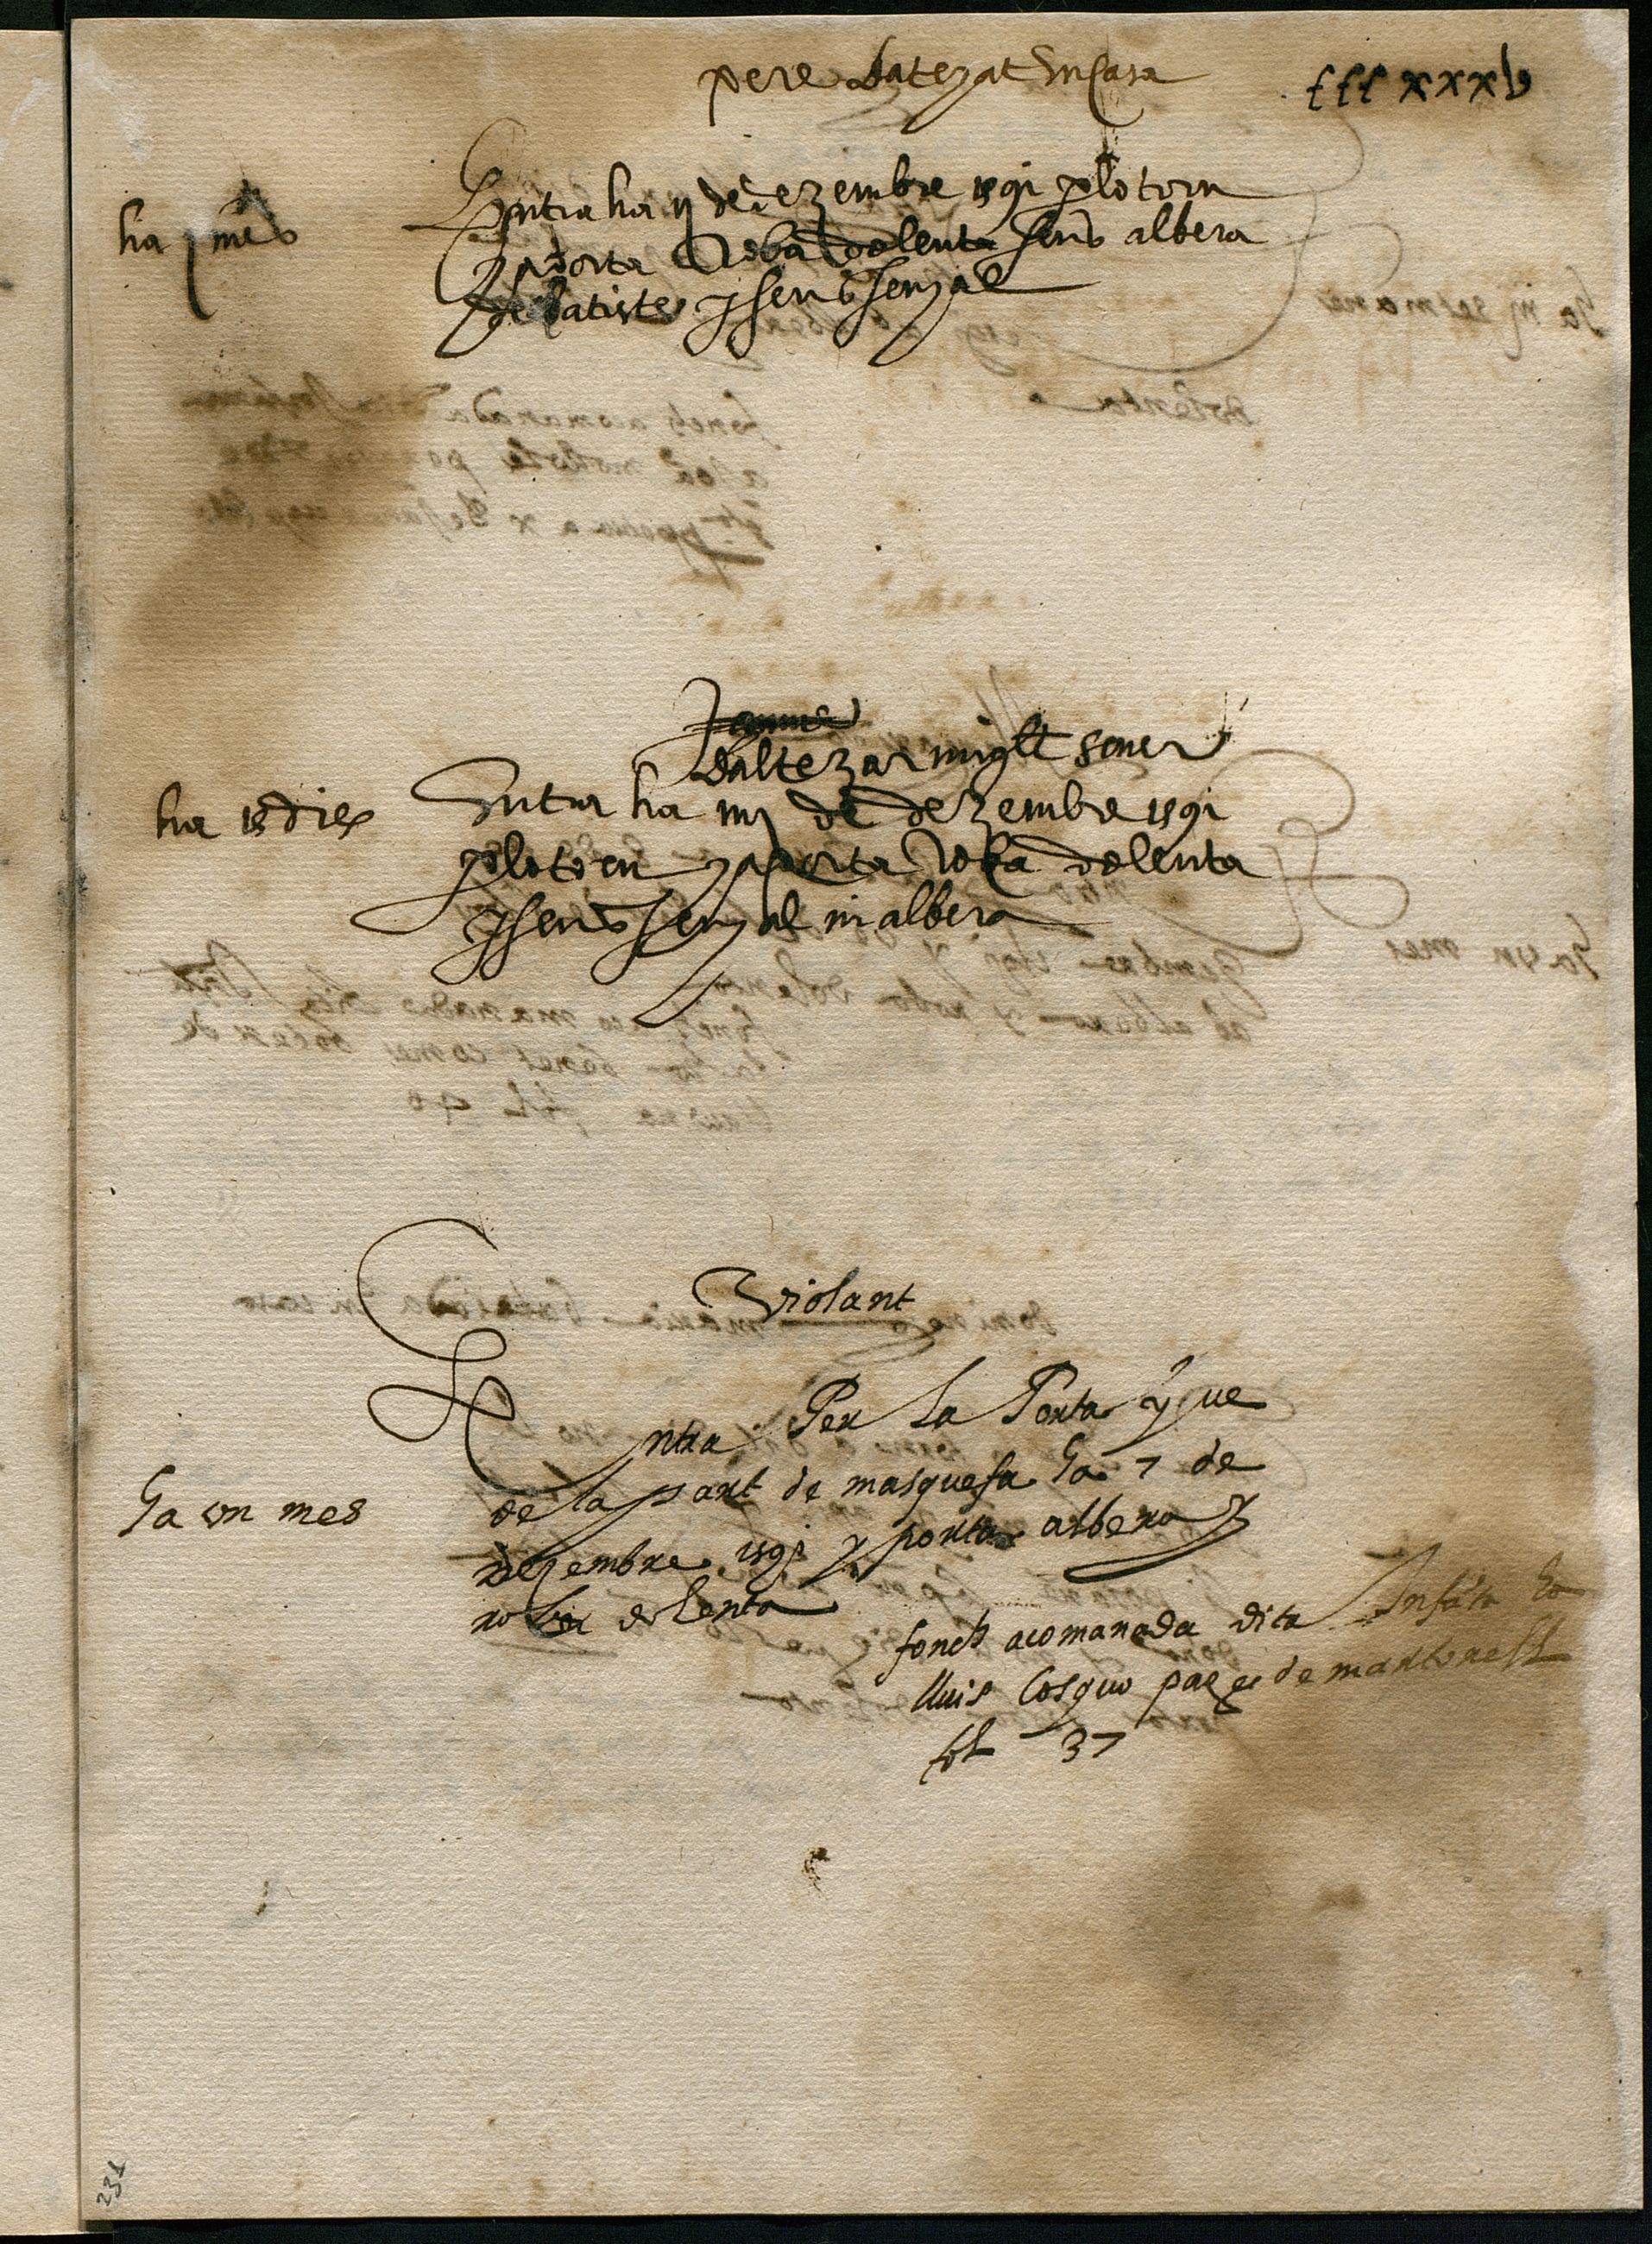 pere batezat en Casa
CCCxxxv
ha j mes
Entra ha ij de dezembre 1591 p lo torn
y aporta Roba dolenta sens albera
de batiste y sens senyal
Jaume
baltezar migll soner
ha 15 dies
Entra ha iiij de dezembre 1591
p lo torn y aporta Roba dolenta
y sens senyal ni albera
Violant
Entra Per la Porta y ve
de la part de masquefa ha 7 de
ha un mes
dezembre 1591 y porta albera y
roba dolenta
fonch acomanada dita Infanta ha
lluis Cosquo pages de martorell
fol 37
231